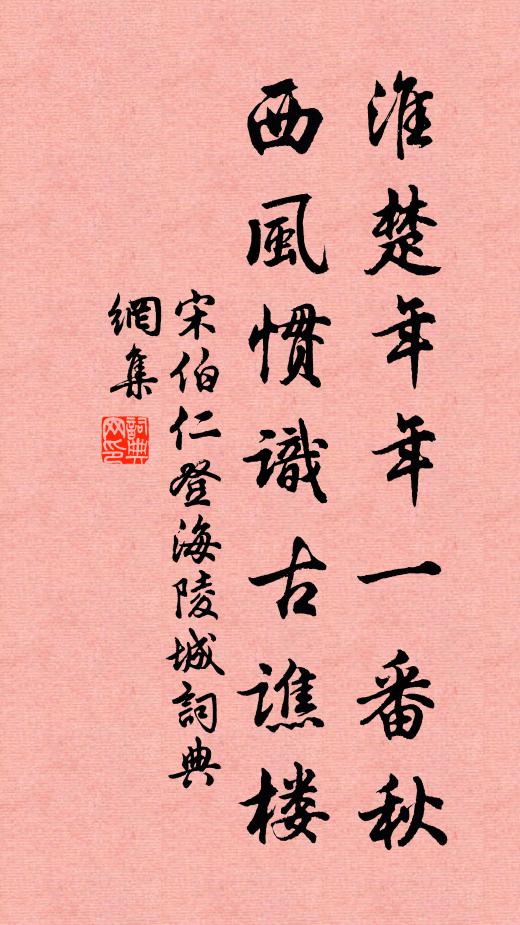 淮楚年年一番秋
西風慣識古譙楼
宋伯仁登海陵城詞典
網集
詞典
网印